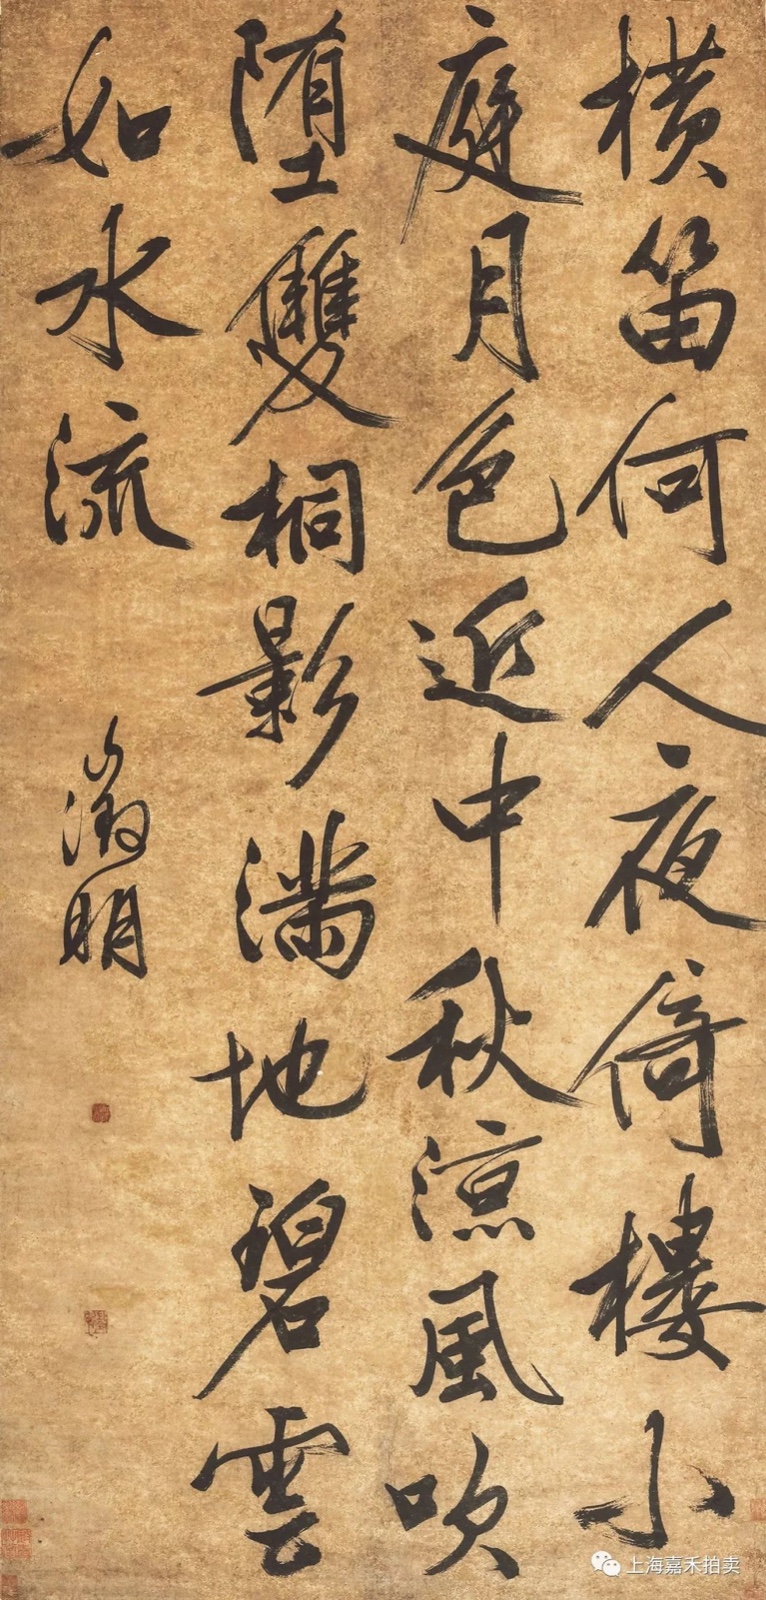 橫笛何人夜倚樓小
庭月色近中秋涼風吹
墮雙桐影滿地碧雲
如水流
徵明
上海嘉禾拍卖